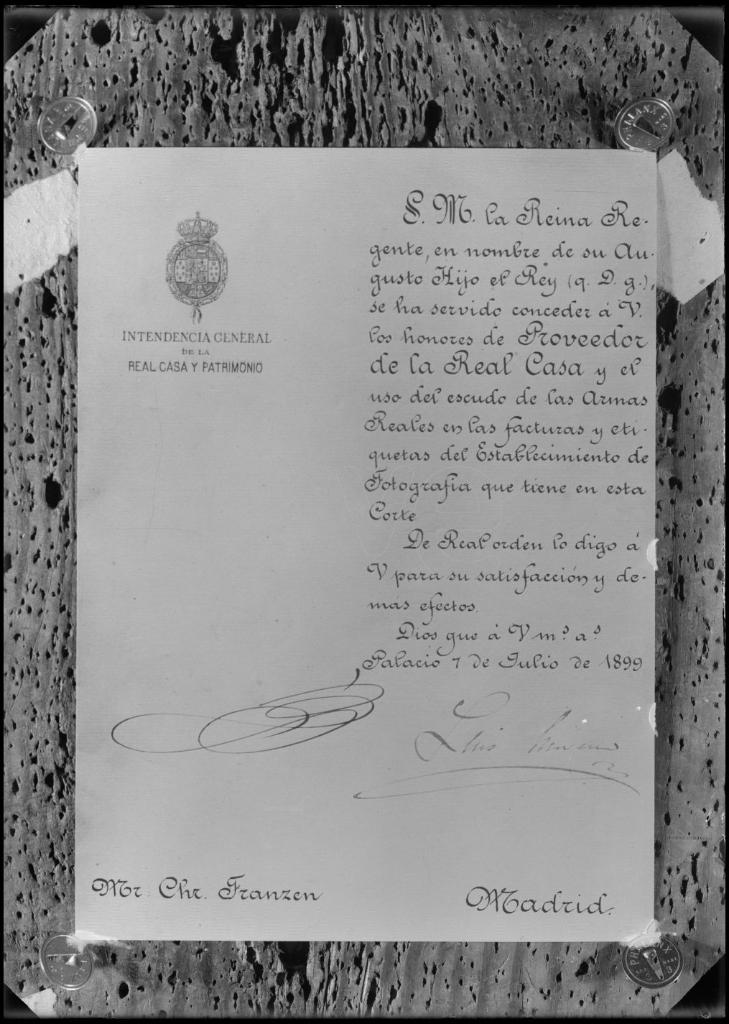 INTENDENCIA GENERAL
DE LA
REAL CASA Y PATRIMONIO
S. M. la Reina Re-
gente, en nombre de su Au-
gusto Hijo el Rey (q. D. g.),
se ha servido conceder á V.
los honores de Proveedor
de la Real Casa y el
uso del escudo de las Armas
Reales en las facturas y eti-
quetas del Establecimiento de
Fotografia que tiene en esta
Corte
De Real orden lo digo á
V para su satisfacción y de-
mas efectos.
Dios gue á V m.ˢ a.ˢ
Palacio 7 de Julio de 1899
Luis Moreno
Mr. Chr. Franzen
Madrid.